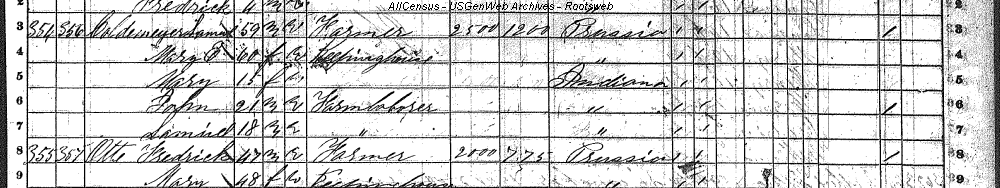 AllCensus - USGenWeb Archives - Rootsweb
2 Fredrick 4 m w 2
3 354 356 Coldemeyer Samuel 59 m w Farmer 2500 1200 Prussia 1 1 1 3
4 Mary 60 f w Keepinghouse " 1 1 4
5 Mary 15 f w Indiana 1 1 5
6 John 21 m w Farmlaborer " 1 1 1 6
7 Samuel 18 m w " " 1 1 7
8 355 357 Otte Fredrick 47 m w Farmer 2000 775 Prussia 1 1 1 8
9 Mary 48 f w Keepinghouse " 9